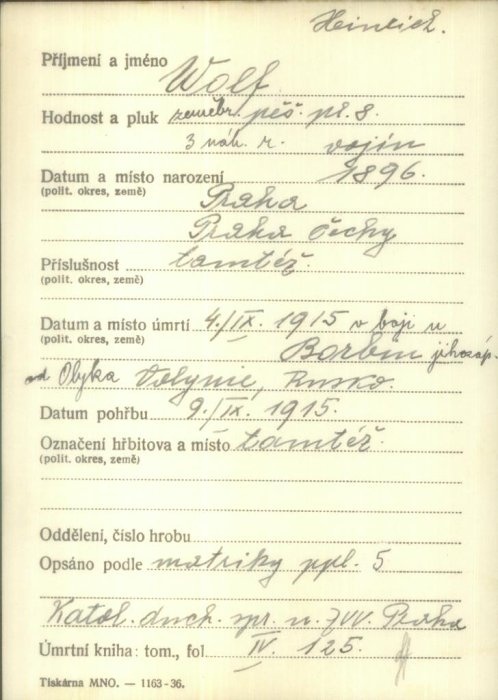 Heinrich.
Příjmení a jméno Wolf
Hodnost a pluk zeměbr. pěš. pl. 8.
3 náh. r. vojín
Datum a místo narození 1896.
(polit. okres, země) Praha
Praha Čechy
Příslušnost tamtéž.
(polit. okres, země)
Datum a místo úmrtí 4./IX. 1915 v boji u
(polit. okres, země) Borbin jihozáp.
od Olyka Volynie, Rusko.
Datum pohřbu 9./IX. 1915.
Označení hřbitova a místo tamtéž.
(polit. okres, země)
Oddělení, číslo hrobu
Opsáno podle matriky ppl. 5
Katol. duch. spr. u ZVV. Praha
Úmrtní kniha: tom., fol. IV. 125.
Tiskárna MNO. — 1163-36.